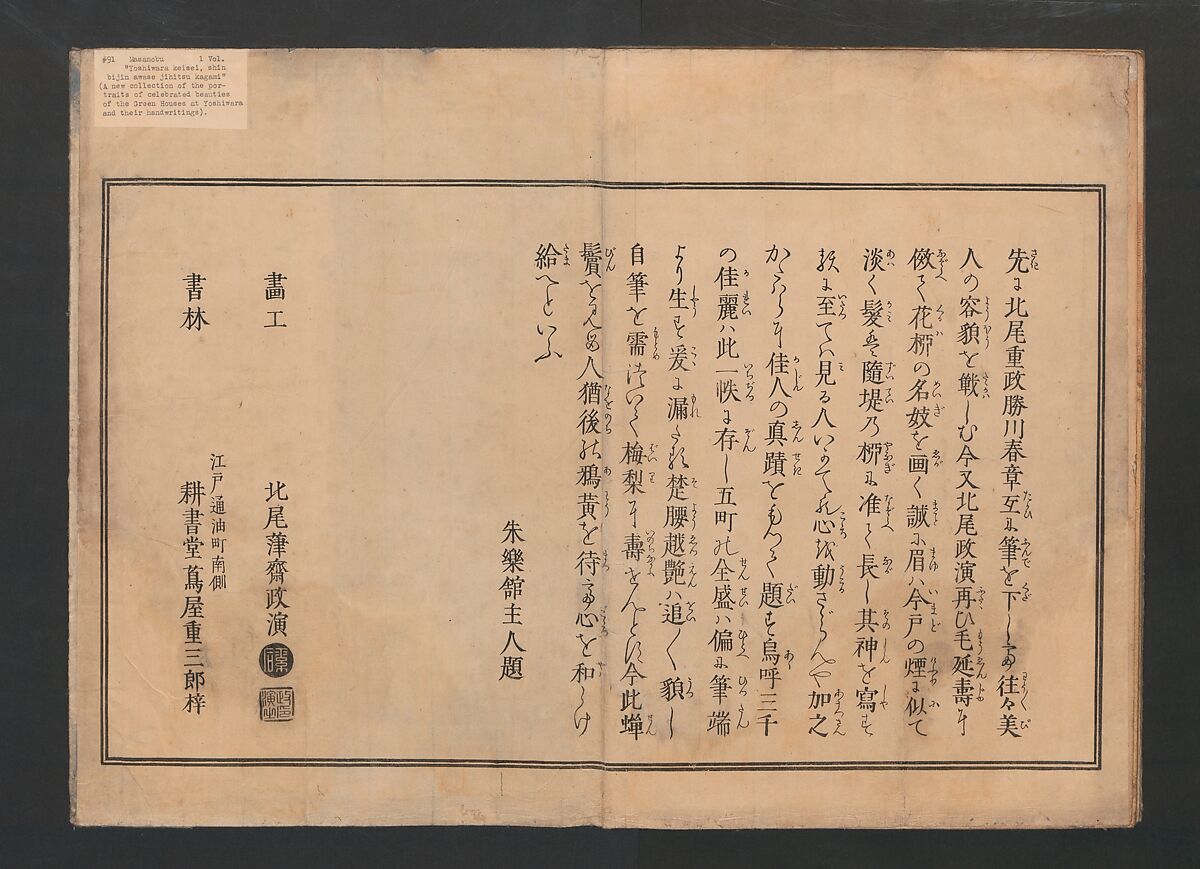 #91 Masanobu 1 Vol.
"Yoshiwara keisei, shin
bijin awase jihitsu kagami"
(A new collection of the por-
traits of celebrated beauties
of the Green Houses at Yoshiwara
and their handwritings).
先に北尾重政勝川春章互に筆を下して往々美
人の容貌を戦しむ今又北尾政演再ひ毛延壽に
倣て花柳の名妓を画く誠に眉ハ今戸の煙に似て
淡く髪は隨堤乃柳に准て長し其神を寫す
に至てハ見る人いかて心を動さゝらんや加之
かたハらに佳人の真蹟をもつて題す烏呼三千
の佳麗ハ此一帙に存し五町の全盛ハ偏に筆端
より生す爰に漏たる楚腰越艶ハ追〱貌し
自筆を需ついて梅梨に壽せんとす今此蝉
鬢を見る人猶後の鴉黄を待て心を和らけ
給へといふ
朱樂舘主人題
畫工 北尾葎齋政演
政演之印
書林 江戸通油町南側
耕書堂蔦屋重三郎梓